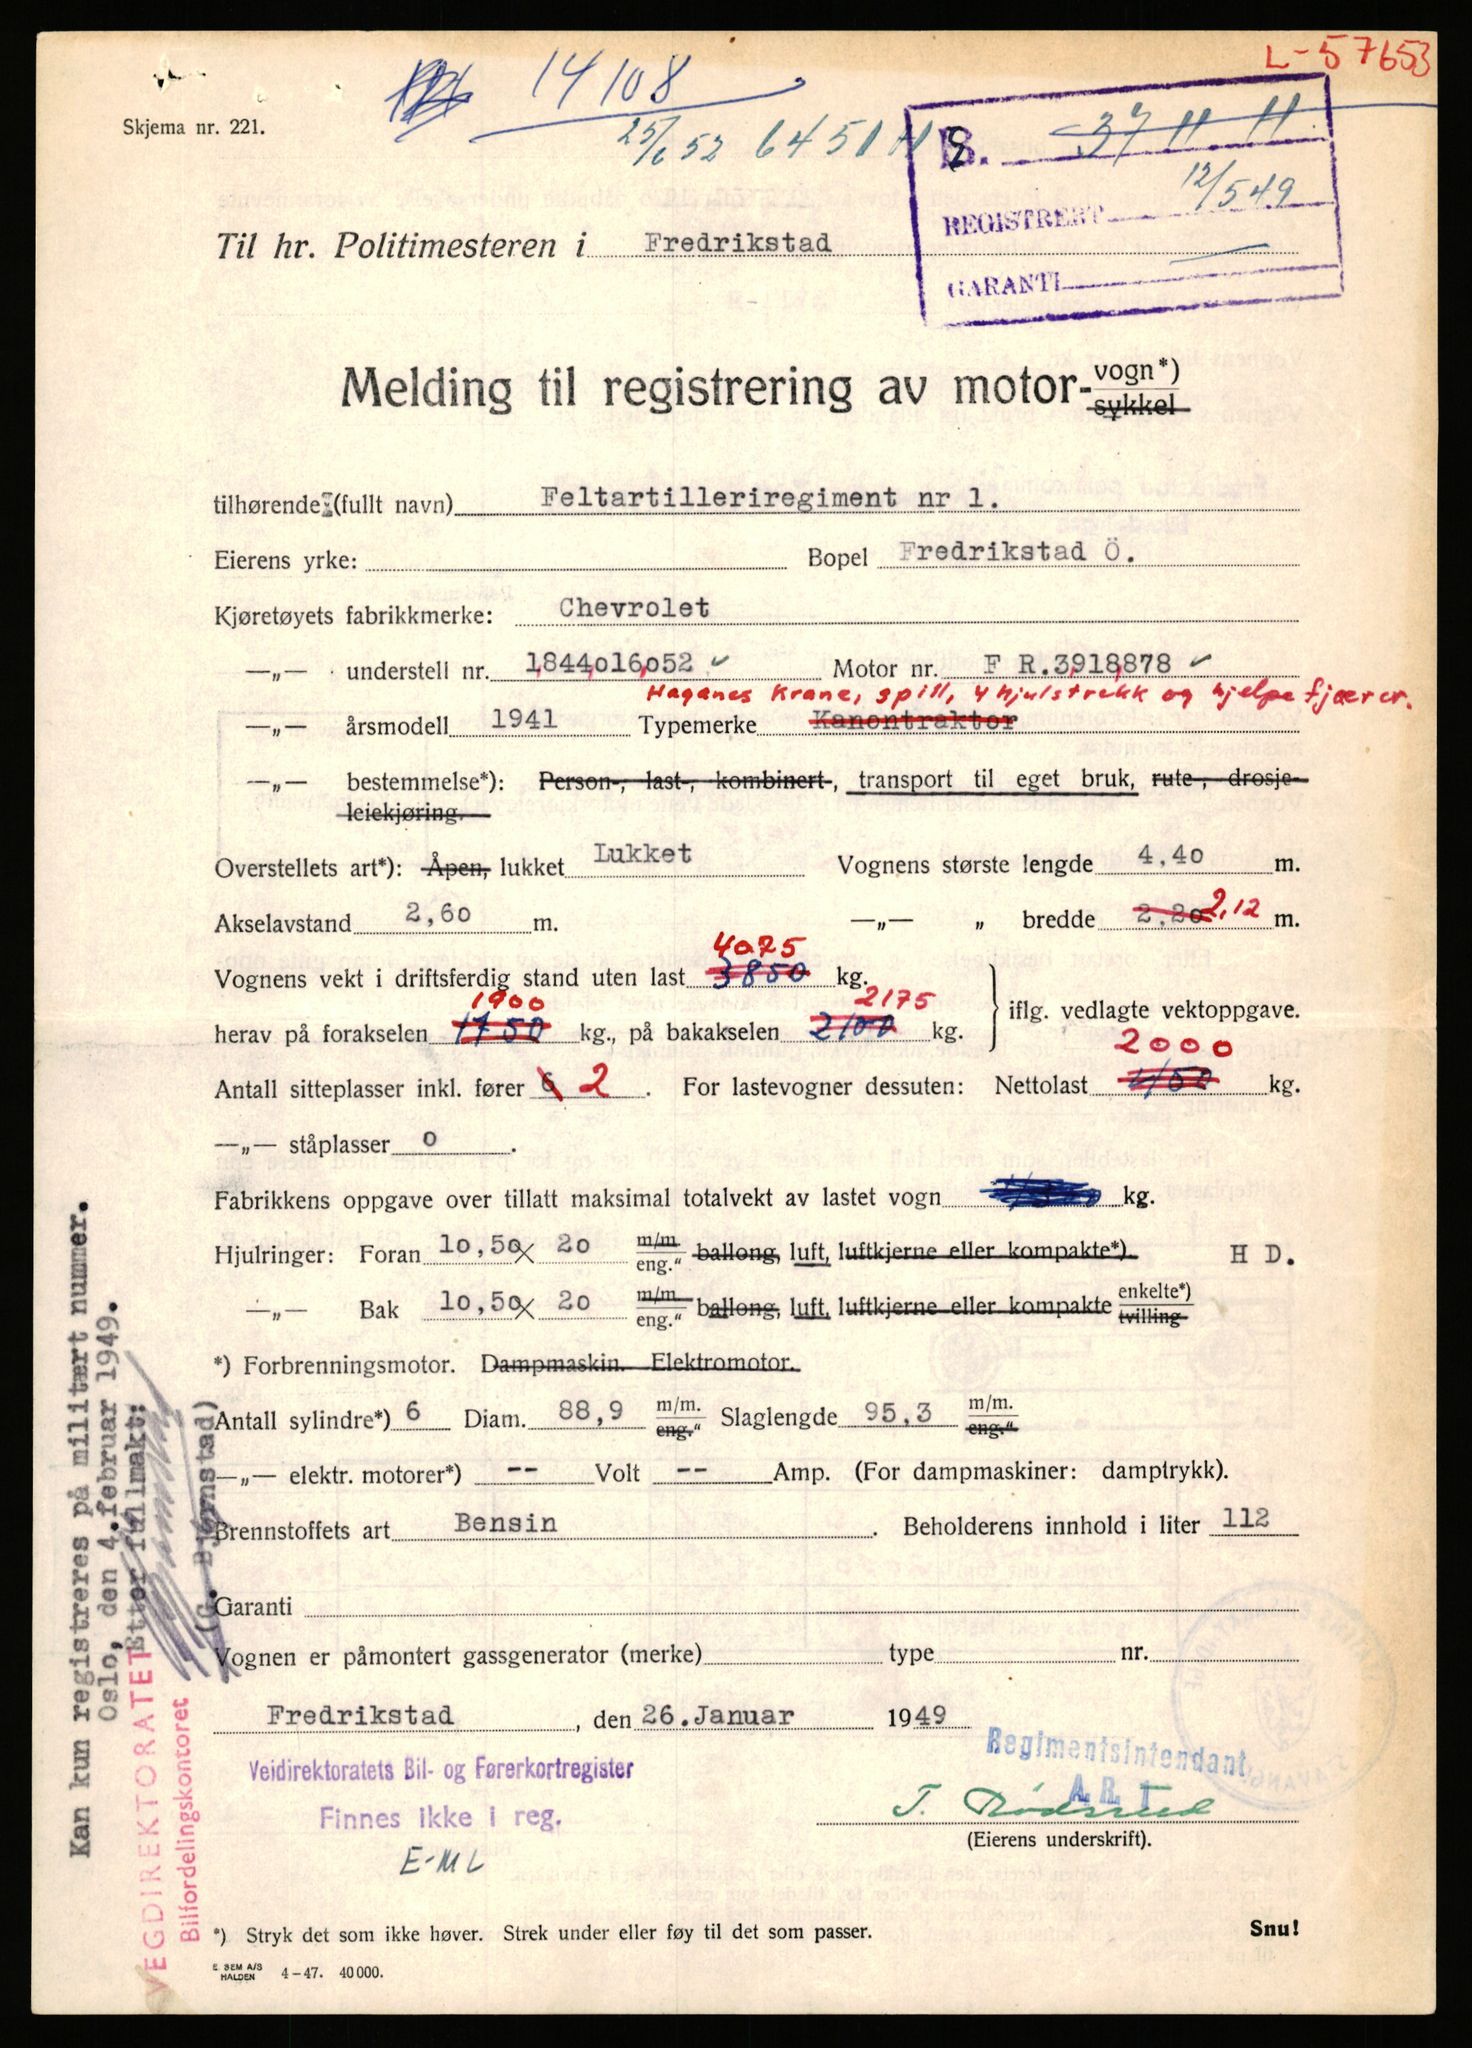 L-57653
14108
Skjema nr. 221.
25/6 52 6451
B. 37
REGISTRERT 12/5 49
GARANTI
Til hr. Politimesteren i Fredrikstad
Melding til registrering av motor- vogn*)
sykkel
tilhørende: (fullt navn) Feltartilleriregiment nr 1.
Eierens yrke: Bopel Fredrikstad Ö.
Kjøretøyets fabrikkmerke: Chevrolet
—„— understell nr. 1844016052 ✓ Motor nr. F R.3918878 ✓
Haganes Krane, spill, 4 hjulstrekk og hjelpefjærer.
—„— årsmodell 1941 Typemerke Kanontraktor
—„— bestemmelse*): Person-, last-, kombinert, transport til eget bruk, rute-, drosje-
leiekjøring.
Overstellets art*): Åpen, lukket Lukket Vognens største lengde 4,40 m.
Akselavstand 2,60 m. —„— „ bredde 2,20 2,12 m.
4075
Vognens vekt i driftsferdig stand uten last 3850 kg.
1900 2175
herav på forakselen 1750 kg., på bakakselen 2100 kg. iflg. vedlagte vektoppgave.
2000
Antall sitteplasser inkl. fører 6 2. For lastevogner dessuten: Nettolast 450 kg.
—„— ståplasser 0.
Fabrikkens oppgave over tillatt maksimal totalvekt av lastet vogn kg.
Hjulringer: Foran 10,50 x 20 m/m eng." ballong, luft, luftkjerne eller kompakte*). H D.
—„— Bak 10,50 x 20 m/m eng." ballong, luft, luftkjerne eller kompakte enkelte*) tvilling
*) Forbrenningsmotor. Dampmaskin. Elektromotor.
Antall sylindre*) 6 Diam. 88,9 m/m. eng." Slaglengde 95,3 m/m. eng."
—„— elektr. motorer*) -- Volt -- Amp. (For dampmaskiner: damptrykk).
Brennstoffets art Bensin. Beholderens innhold i liter 112
Garanti
Vognen er påmontert gassgenerator (merke) type nr.
Fredrikstad, den 26. Januar 1949
Veidirektoratets Bil- og Førerkortregister
Finnes ikke i reg.
E-ML
Regimentsintendant
A. R. 1
T. Rødsrud
(Eierens underskrift).
*) Stryk det som ikke høver. Strek under eller føy til det som passer. Snu!
E. SEM A/S
HALDEN 4–47. 40 000.
Kan kun registreres på militært nummer.
Oslo, den 4. februar 1949.
Etter fullmakt:
(G. Bjørnstad)
VEGDIREKTORATET
Bilfordelingskontoret